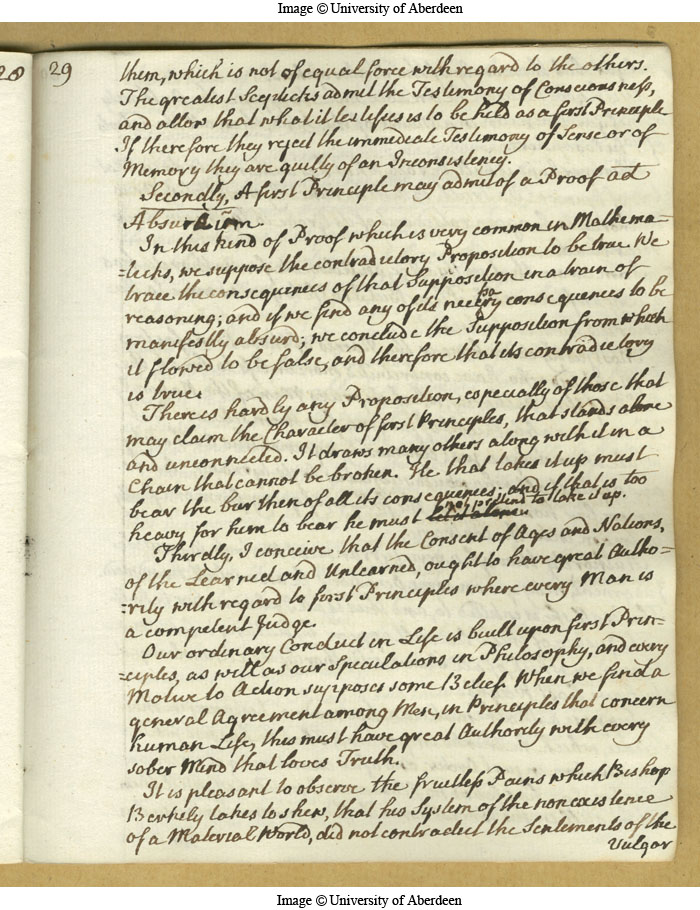 Image © University of Aberdeen
28
29
them, which is not of equal force with regard to the others.
The greatest Scepticks admit the Testimony of Consciousness,
and allow that what it testifies is to be held as a first Principle
If therefore they reject the immediate Testimony of Sense or of
Memory they are guilty of an Inconsistency.
Secondly, A first Principle may admit of a Proof ad
Absurdum.
In this kind of Proof which is very common in Mathema-
-ticks, we suppose the contradictory Proposition to be true. We
trace the consequences of that Supposition in a train of
reasoning; and if we find any of its necessary consequences to be
manifestly absurd; we conclude the Supposition from which
it flowed to be false, and therefore that its contradictory
is true.
There is hardly any Proposition, especially of those that
may claim the Character of first Principles, that stands alone
and unconnected. It draws many others along with it in a
Chain that cannot be broken. He that takes it up must
bear the burthen of all its consequences; and if that is too
heavy for him to bear he must let it alone. not pretend to take it up.
Thirdly, I conceive that the Consent of Ages and Nations,
of the Learned and Unlearned, ought to have great Autho-
-rity with regard to first Principles where every Man is
a competent Judge.
Our ordinary Conduct in Life is built upon first Prin-
-ciples, as well as our Speculations in Philosophy, and every
Motive to Action supposes some Belief. When we find a
general Agreement among Men, in Principles that concern
human Life, this must have great Authority with every
sober Mind that loves Truth.
It is pleasant to observe the fruitless Pains which Bishop
Berkely takes to shew, that his System of the non existence
of a Material World, did not contradict the Sentements of the
Vulgar
Image © University of Aberdeen